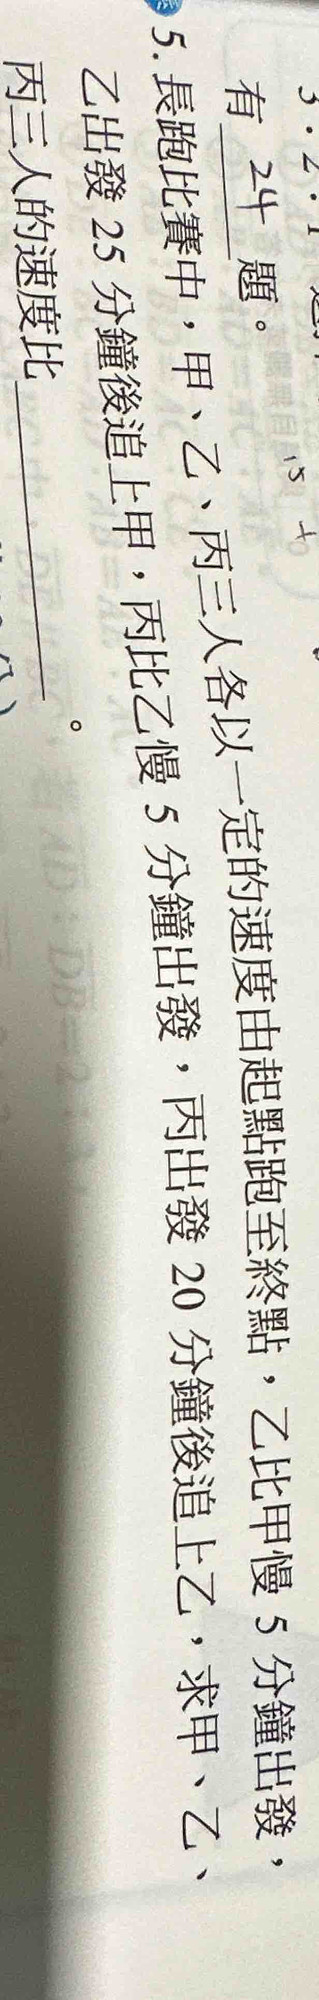 有 24 題。
5. 長跑比賽中，甲、乙、丙三人各以一定的速度由起點跑至終點，乙比甲慢 5 分鐘出發，
乙出發 25 分鐘後追上甲，丙比乙慢 5 分鐘出發，丙出發 20 分鐘後追上乙，求甲、乙、
丙三人的速度比＿＿＿＿＿＿。